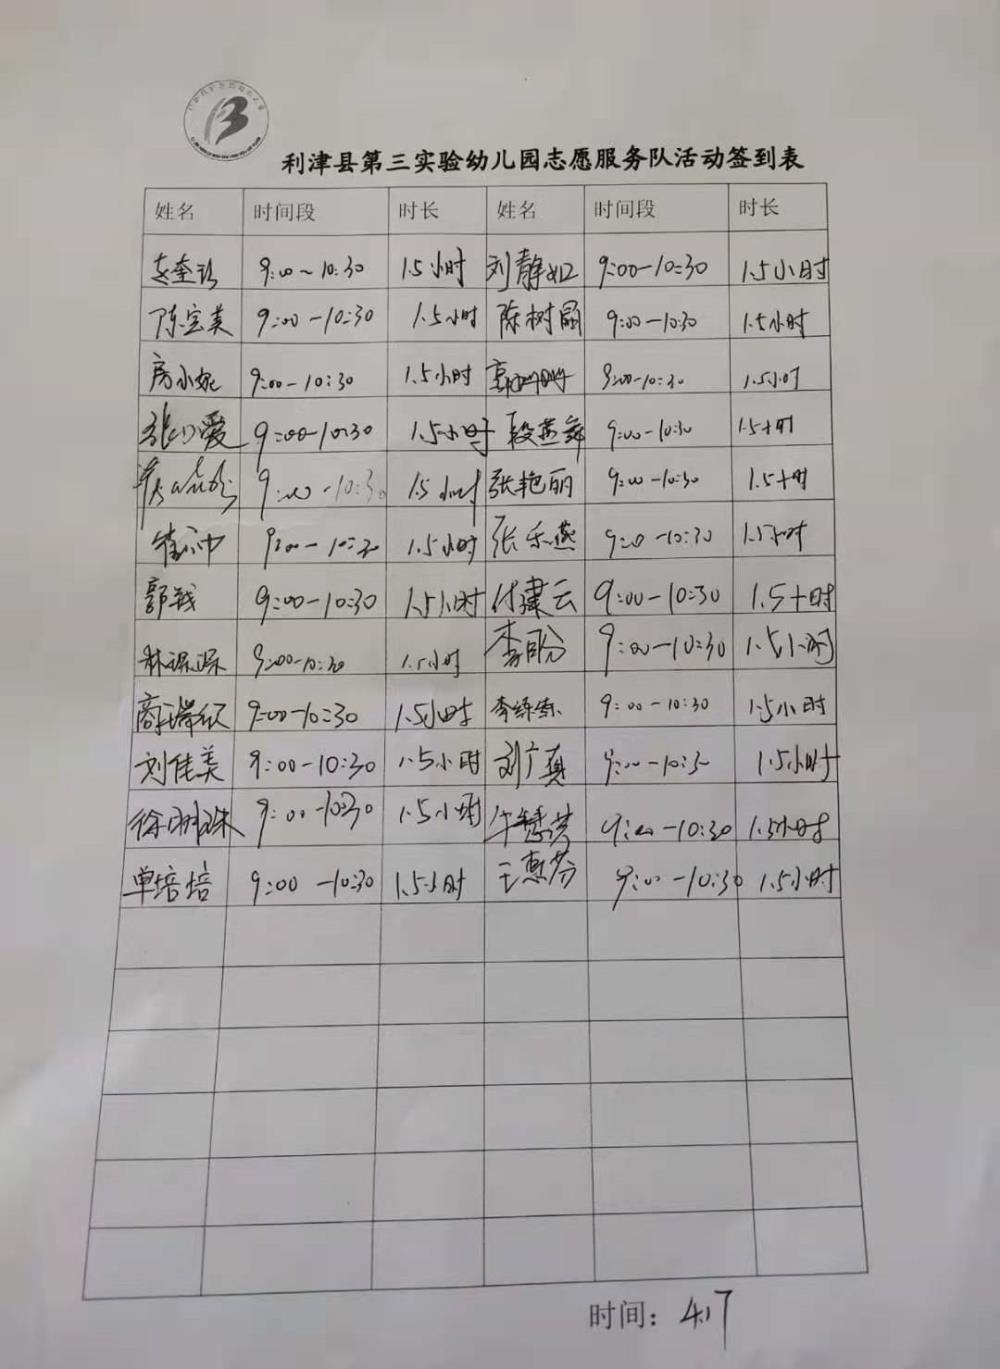 利津县第三实验幼儿园志愿服务队活动签到表
姓名 时间段 时长 姓名 时间段 时长
9:00~10:30 1.5小时 刘静如 9:00-10:30 1.5小时
陈宝英 9:00-10:30 1.5小时 陈树晶 9:00-10:30 1.5小时
房小妮 9:00-10:30 1.5小时 9:00-10:30 1.5小时
9:00-10:30 1.5小时 段燕舞 9:00-10:30 1.5小时
9:00-10:30 1.5小时 张艳丽 9:00-10:30 1.5小时
9:00-10:30 1.5小时 张乐燕 9:00-10:30 1.5小时
郭钱 9:00-10:30 1.5小时 付建云 9:00-10:30 1.5小时
林琛琛 9:00-10:30 1.5小时 李盼 9:00-10:30 1.5小时
商瑞红 9:00-10:30 1.5小时 李练练 9:00-10:30 1.5小时
刘佳美 9:00-10:30 1.5小时 刘广真 9:00-10:30 1.5小时
徐珊珠 9:00-10:30 1.5小时 牛慧芳 9:00-10:30 1.5小时
单培培 9:00-10:30 1.5小时 王惠芬 9:00-10:30 1.5小时
时间：4.17